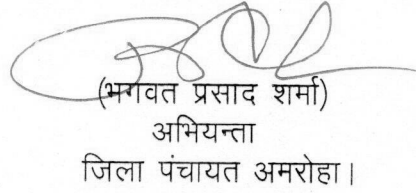 (भगवत प्रसाद शर्मा)
अभियन्ता
जिला पंचायत अमरोहा।